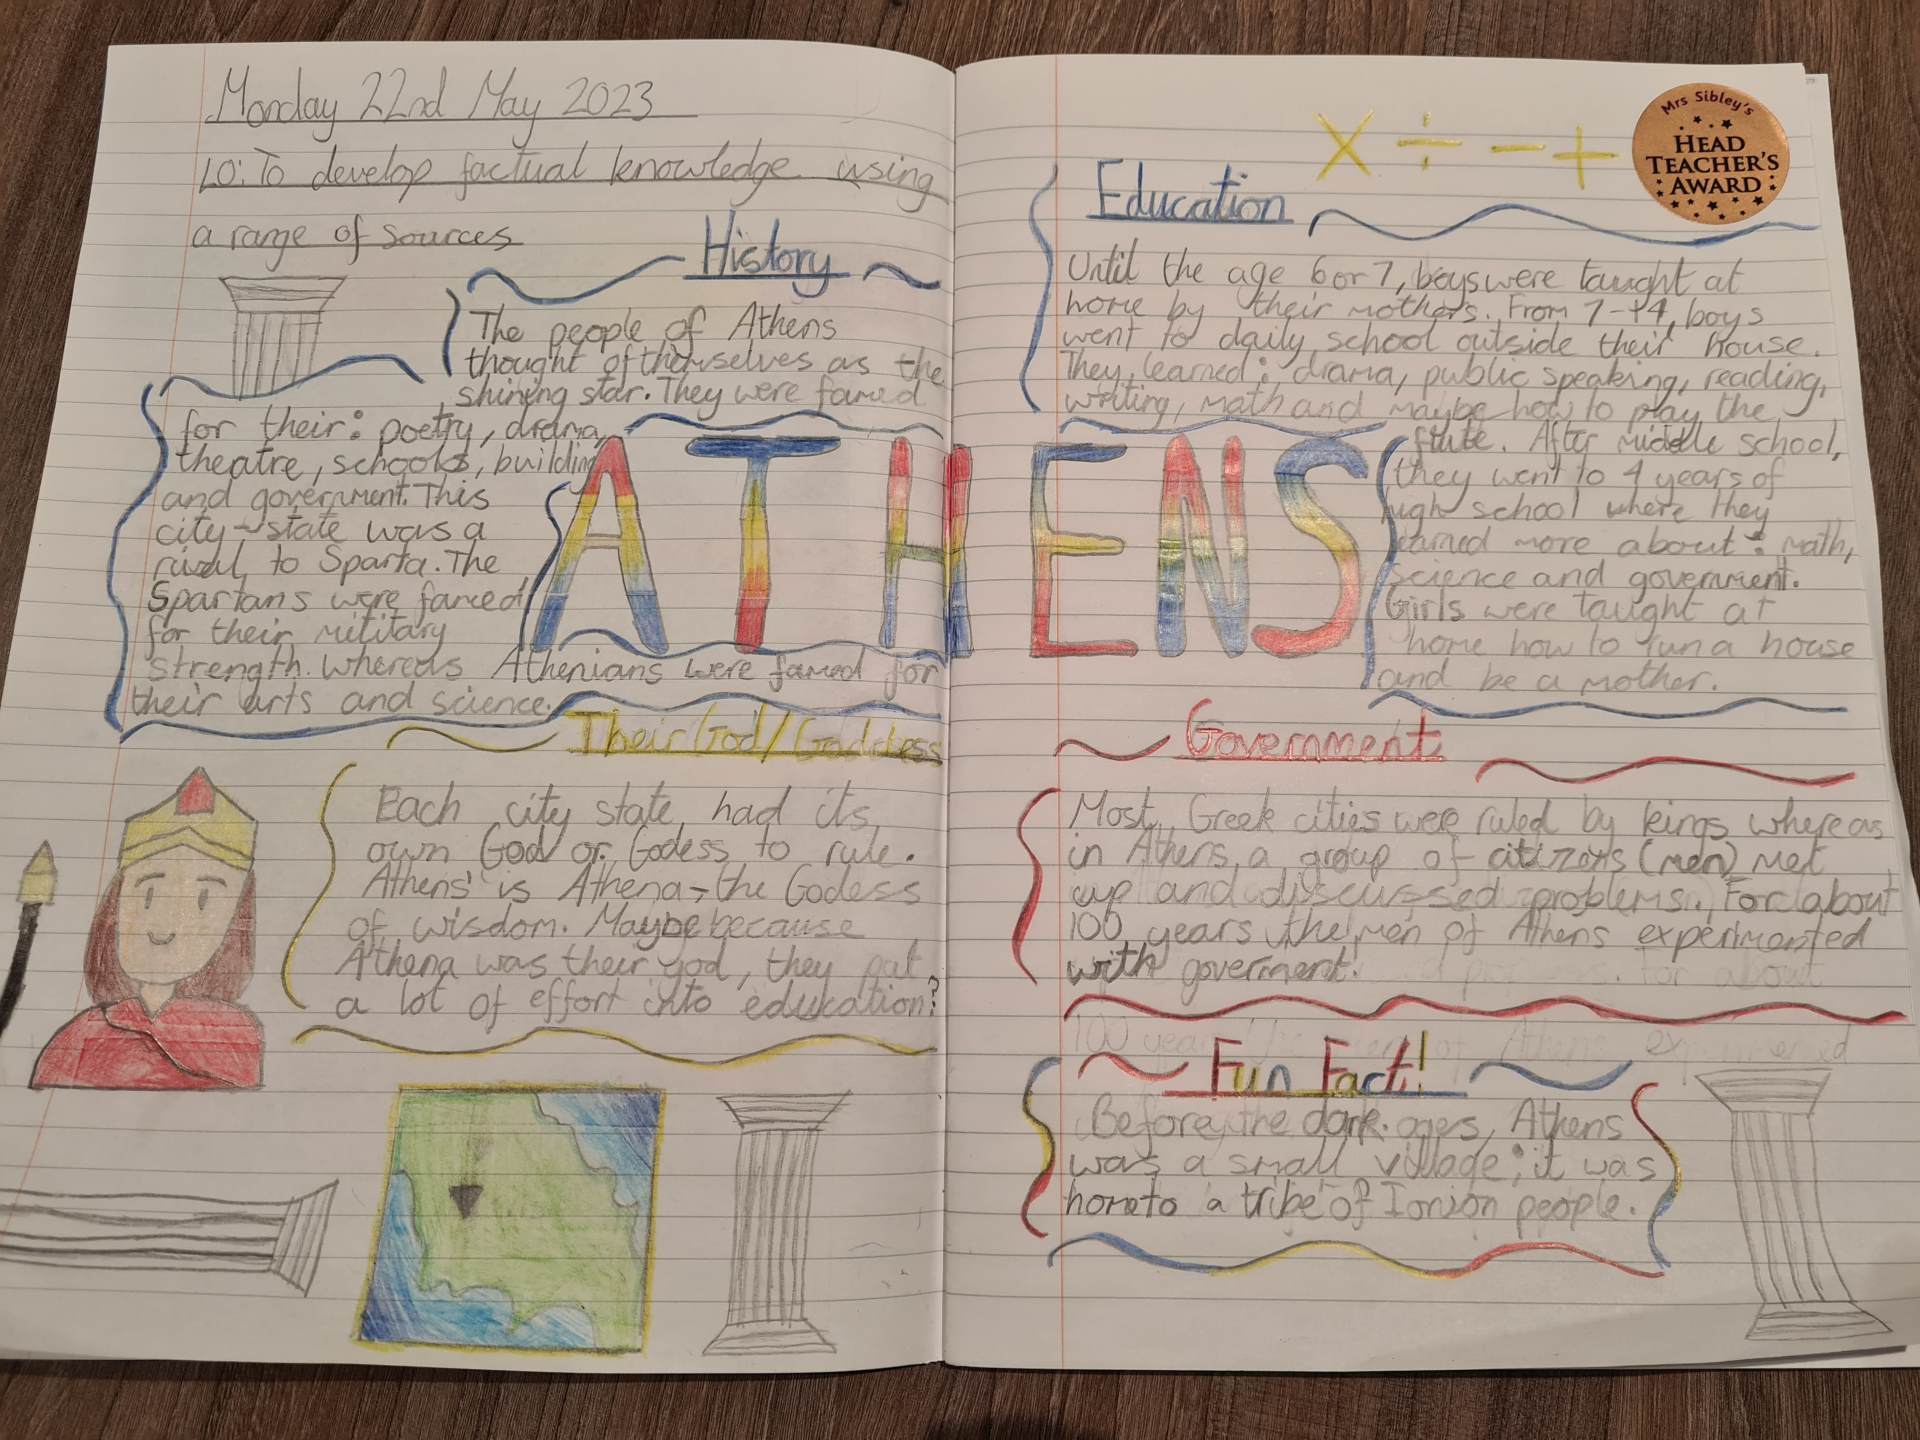 Monday 22nd May 2023
LO: To develop factual knowledge using
a range of sources
History
The people of Athens
thought of themselves as the
shining star. They were famed
for their: poetry, drama,
theatre, schools, building
and government. This
city-state was a
rival to Sparta. The
Spartans were famed
for their military
strength. whereas Athenians were famed for
their arts and science.
ATHENS
Their God/Goddess
Each city state had its
own God or Godess to rule.
Athens' is Athena, the Godess
of wisdom. Maybe because
Athena was their god, they put
a lot of effort into education?
Mrs Sibley's
HEAD
TEACHER'S
AWARD
× ÷ - +
Education
Until the age 6 or 7, boys were taught at
home by their mothers. From 7-14, boys
went to daily school outside their house.
They learned: drama, public speaking, reading,
writing, math and maybe how to play the
flute. After middle school,
they went to 4 years of
high school where they
learned more about: math,
science and government.
Girls were taught at
home how to run a house
and be a mother.
Government
Most Greek cities were ruled by kings whereas
in Athens, a group of citizens (men) met
up and discussed problems. For about
100 years the men of Athens experimented
with goverment.
Fun Fact!
Before the dark ages, Athens
was a small village; it was
home to a tribe of Ionion people.